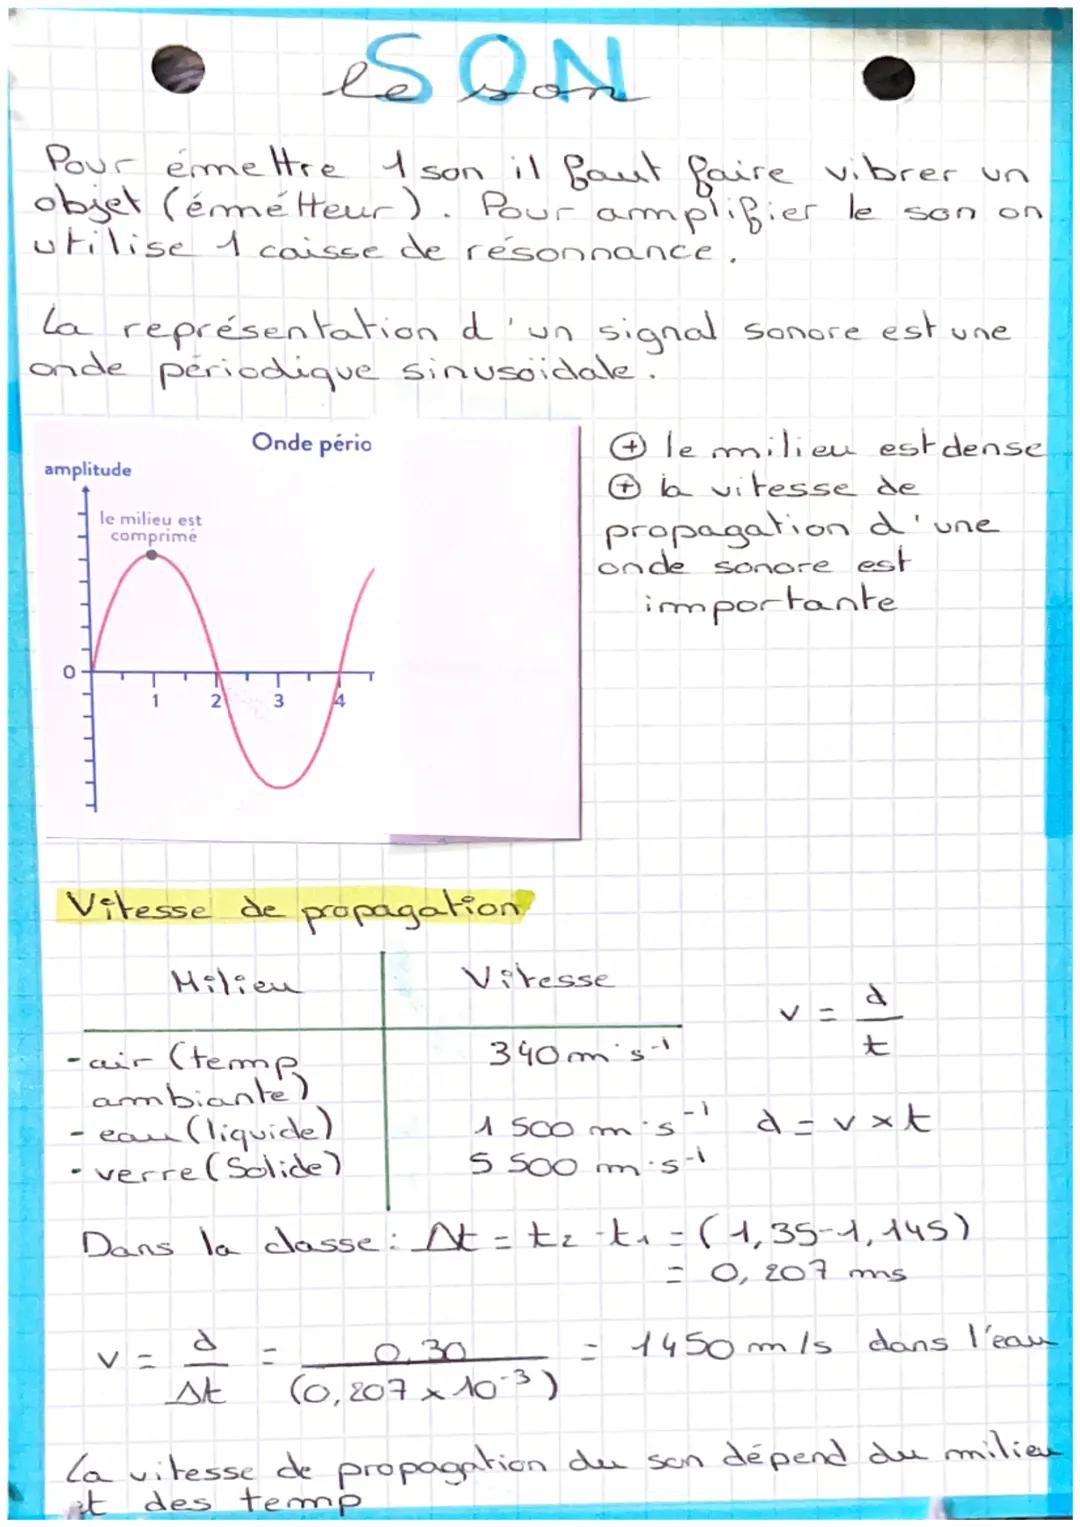 SON
le son
Pour émettre 1 son il faut faire vibrer un
objet (émétteur). Pour amplifier le son on
utilise 1 caisse de résonnance.
La représentation d'un signal sonore est une
onde périodique sinusoïdale.
Onde pério
amplitude
le milieu est
comprimé
0
1 2 3 4
⊕ le milieu est dense
⊕ la vitesse de
propagation d'une
onde sonore est
importante
Vitesse de propagation
Milieu Vitesse
v = d/t
- air (temp 340 m·s⁻¹
ambiante)
- eau (liquide) 1 500 m·s⁻¹ d = v × t
- verre (Solide) 5 500 m·s⁻¹
Dans la classe : Δt = t₂ - t₁ = (1,35-1,145)
= 0,207 ms
v = d/Δt = 0.30/(0,207 × 10⁻³) = 1450 m/s dans l'eau
La vitesse de propagation du son dépend du milieu
et des temp